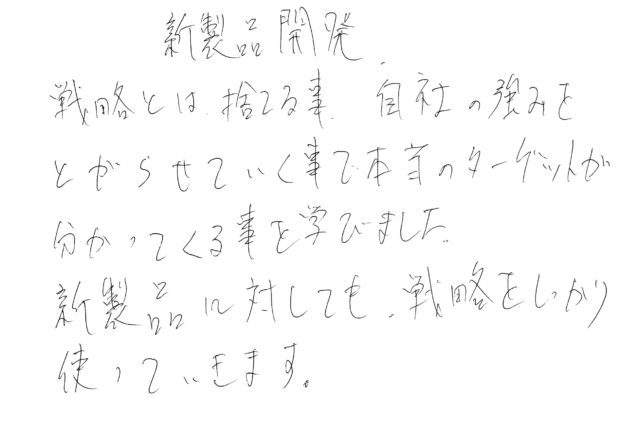 新製品開発.
戦略とは、捨てる事、自社の強みを
とがらせていく事で本当のターゲットが
分かってくる事を学びました。
新製品に対しても、戦略をしっかり
使っていきます。